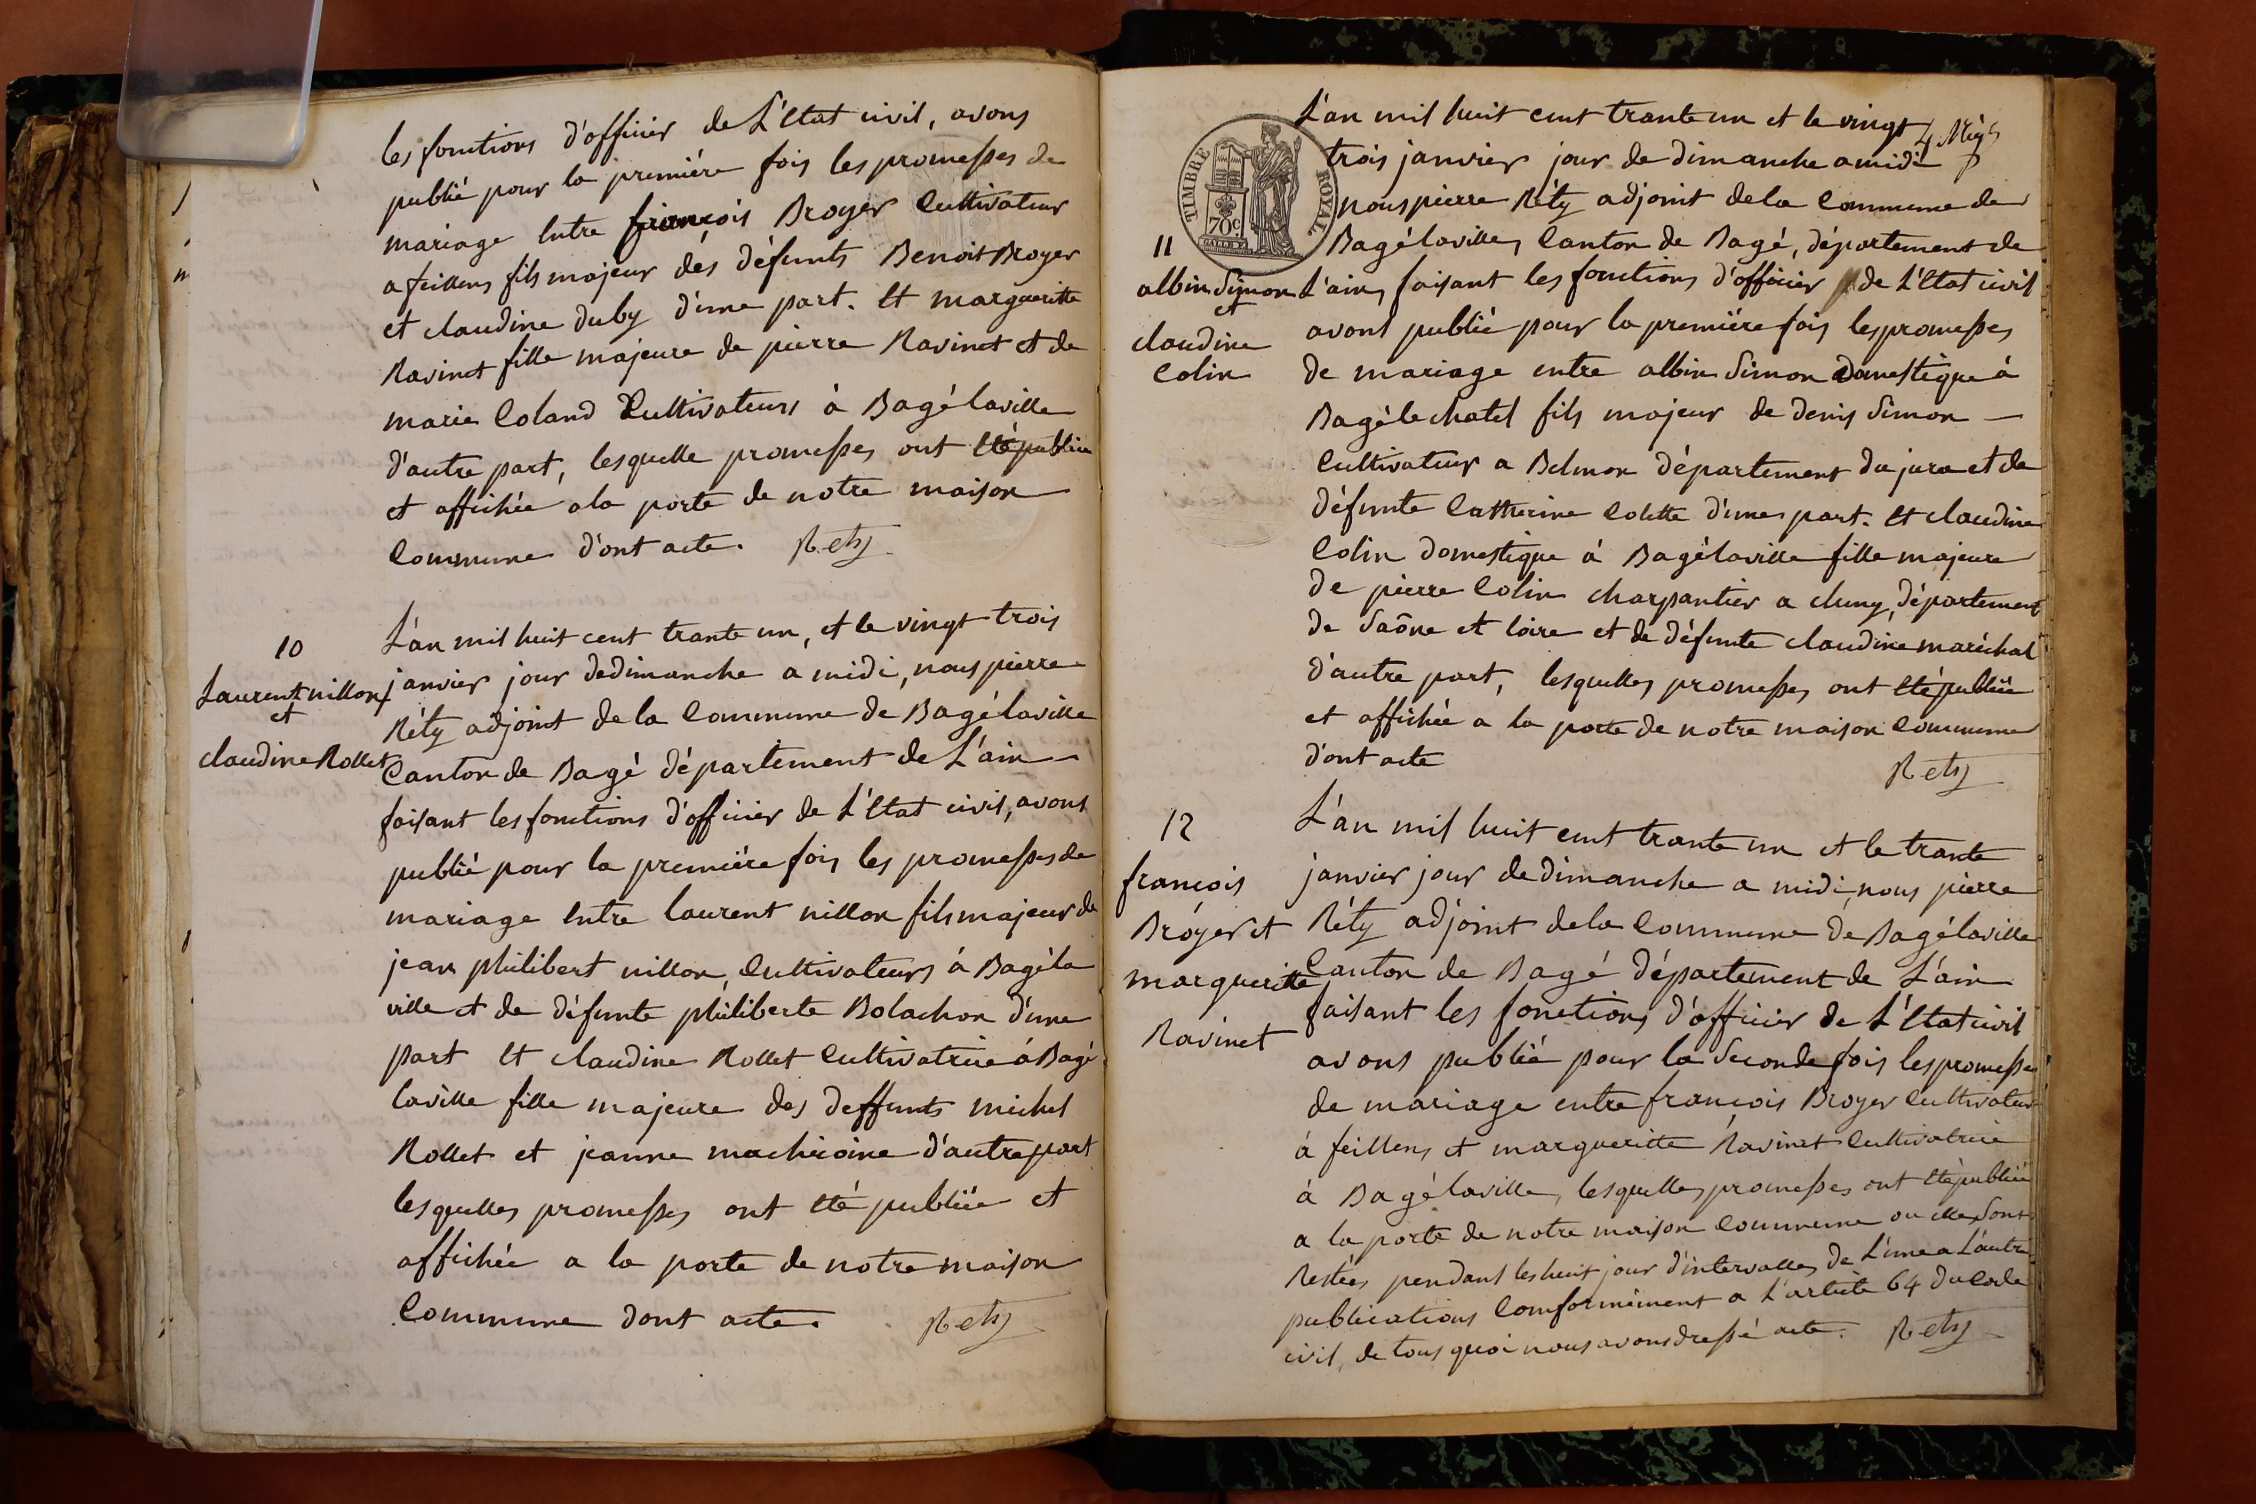 les fonctions d'officier de L'Etat civil, avons
publié pour la première fois les promesses de
mariage Entre françois Broyer Cultivateur
a feillens fils majeur dés défunts Benoit Broyer
et claudine duby d'une part. Et margueritte
Ravinet fille majeure de pierre Ravinet et de
marie Coland Cultivateurs à Bagélaville
d'autre part, lesquelle promesses ont Eté publiée
et affichée a la porte de notre maison
Commune d'ont acte. Rety
10
Laurent nillon
et
claudine Rollet
L'an mil huit cent trante un, et le vingt trois
janvier jour de dimanche a midi, nous pierre
Réty adjoint de la Commune de Bagélaville
Canton de Bagé département de L'ain
faisant les fonctions d'officier de L'Etat civil, avons
publié pour la première fois les promesses de
mariage Entre laurent nillon fils majeur de
jean philibert nillon, Cultivateurs á Bagéla
ville et de défunte philiberte Bolachon d'une
part Et claudine Rollet Cultivatrice á Bagé
laville fille majeure des deffunts michel
Rollet et jeanne machicoine d'autre part
lesquelles promesses ont Eté publiée et
affichée a la porte de notre maison
Commune dont acte. Rety
TIMBRE ROYAL
70c.
L'an mil huit cent trante un et le vingt
trois janvier jour de dimanche a midi
nous pierre Réty adjoint de la Commune de
Bagélaville, Canton de Bagé, département de
11
albin Simon
et
claudine
Colin
L'ain, faisant les fonctions d'officier de L'Etat civil
avons publié pour la première fois les promesses
de mariage entre albin Simon Domestique à
Bagé le chatel fils majeur de denis Simon
Cultivateur a Belmon département du jura et de
défunte Catherine Colette d'une part. Et claudine
Colin domestique á Bagélaville fille majeure
de pierre Colin charpantier a cluny, département
de Saône et loire et de défunte claudine maréchal
d'autre part, lesquelles promesses ont Eté publiée
et affichée a la porte de notre maison Commune
d'ont acte
Rety
12
françois
Bróyer et
margueritte
Ravinet
L'an mil huit cent trante un et le trante
janvier jour de dimanche a midi, nous pierre
Réty adjoint de la Commune de Bagélaville
Canton de Bagé département de L'ain
faisant les fonctions d'officier de L'Etat civil
avons publié pour la Seconde fois les promesses
de mariage entre françois Broyer Cultivateur
á feillens et margueritte Ravinet Cultivatrice
à Bagélaville, lesquelles promesses ont Eté publiée
a la porte de notre maison Commune ou elles Sont
Restées pendant les huit jour d'intervalles de L'une a L'autre
publications Comformément a L'article 64 du Code
civil, de tous quoi nous avons dressé acte. Rety